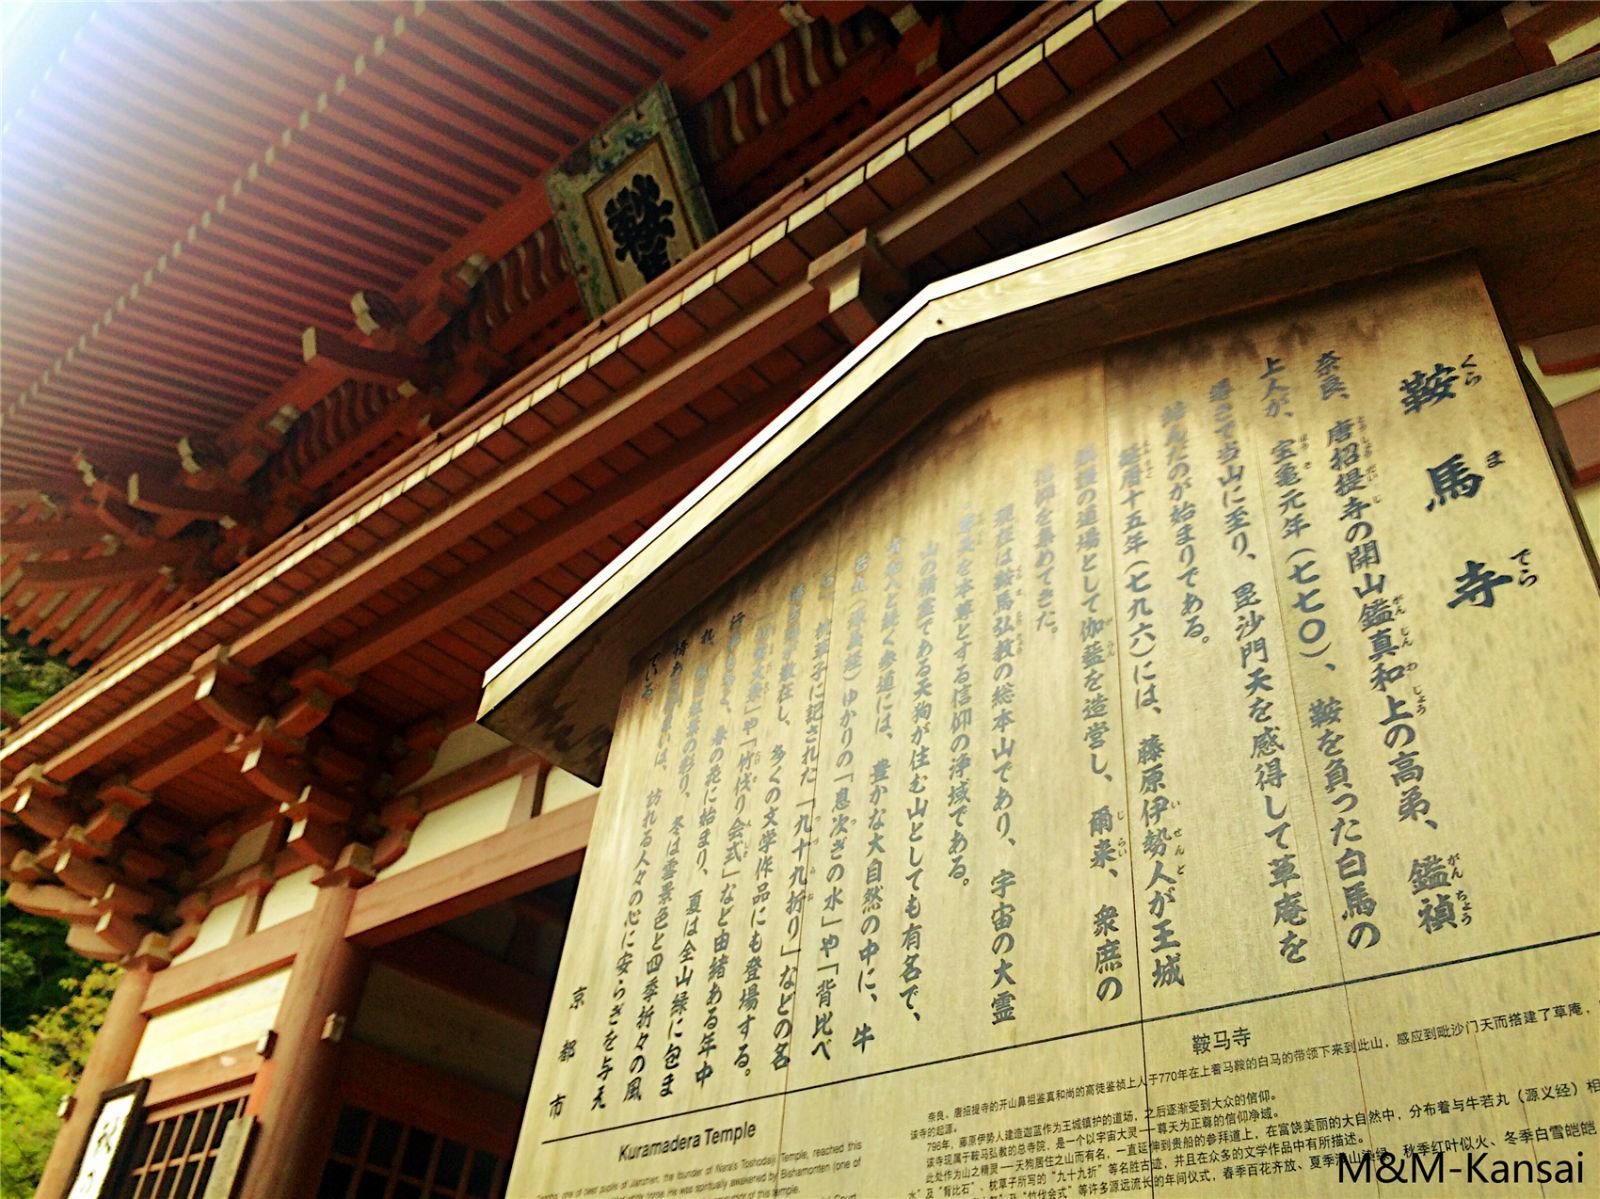 鞍
鞍馬寺
くらまでら
奈良、唐招提寺の開山鑑真和上の高弟、鑑禎
上人が、宝亀元年(七七〇)、鞍を負った白馬の
導きで当山に至り、毘沙門天を感得して草庵を
結んだのが始まりである。
延暦十五年(七九六)には、藤原伊勢人が王城
鎮護の道場として伽藍を造営し、爾来、衆庶の
信仰を集めてきた。
現在は鞍馬弘教の総本山であり、宇宙の大霊
尊天を本尊とする信仰の浄域である。
山の精霊である天狗が住む山としても有名で、
と続く参道には、豊かな大自然の中に、牛
若丸(源義経)ゆかりの「息次ぎの水」や「背比べ
石」、枕草子に記された「九十九折り」などの名
が散在し、多くの文学作品にも登場する。
や「竹伐り会式」など由緒ある年中
春の花に始まり、夏は全山緑に包ま
れ、の彩り、冬は雪景色と四季折々の風
情あ は、訪れる人々の心に安らぎを与え
ている。
京都市
Kuramadera Temple
the founder of Nara's Toshodaiji Temple, reached this
He was spiritually awakened by Bishamonten (one of
鞍马寺
奈良、唐招提寺的开山鼻祖鉴真和尚的高徒鉴祯上人于770年在上着马鞍的白马的带领下来到此山，感应到毗沙门天而搭建了草庵，
该寺的起源。
796年，藤原伊势人建造伽蓝作为王城镇护的道场，之后逐渐受到大众的信仰。
该寺现属于鞍马弘教的总寺院，是一个以宇宙大灵——尊天为正尊的信仰净域。
此处作为山之精灵——天狗居住之山而有名，一直延伸到贵船的参拜道上，在富饶美丽的大自然中，分布着与牛若丸（源义经）相
水”及“背比石”、枕草子所写的“九十九折”等名胜古迹，并且在众多的文学作品中有所描述。
及“竹伐会式”等许多源远流长的年间仪式，春季百花齐放、夏季满山浓绿、秋季红叶似火、冬季白雪皑皑
M&M-Kansai